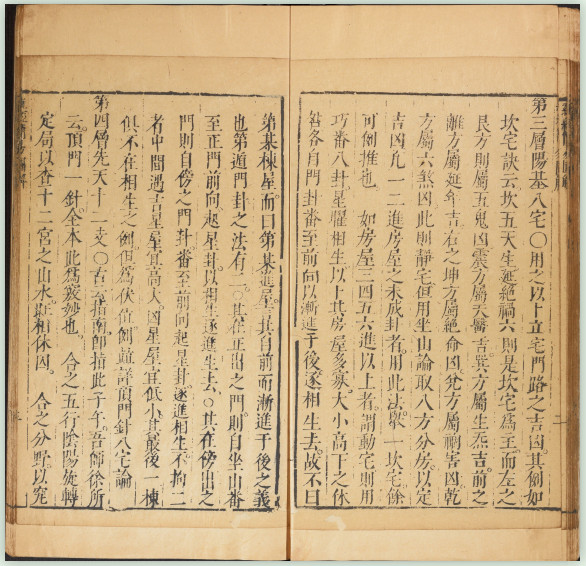 第三層陽基八宅○用之以卜立宅門路之吉凶其例如
坎宅訣云坎五天生延絶禍六則是坎宅為主而左之
艮方則屬五鬼凶震方屬天醫吉巽方屬生炁吉前之
離方屬延年吉右之坤方屬絶命凶兌方屬禍害凶乾
方屬六煞凶此則靜宅但用坐山論取八方分房以定
吉凶凡一二進房屋之未成卦者用此法舉一坎宅餘
可例推也 如房屋三四五六進以上者謂動宅則用
巧番八卦星懼相生以卜其房屋多寡大小高下之休
咎各自門卦番至前向以漸進于後遂相生去故不曰
第某棟屋而曰第某進屋言其自前而漸進于後之義
也第遁門卦之法有二○其在正出之門則自坐山番
至正門前向起星卦以相生逐進生去○其在傍出之
門則自傍之門卦番至前向起星卦逐進相生不拘二
者中間遇吉星屋宜高大凶星屋宜低小其最後一棟
俱不在相生之例但為伏位例題詳頂門針八宅論
第四層先天十二支○古云指南即指此子午吾師徐所
云頂門一針全本此為竅妙也 合之五行陰陽旋轉
定局以查十二宮之山水旺相休囚 合之分野以究